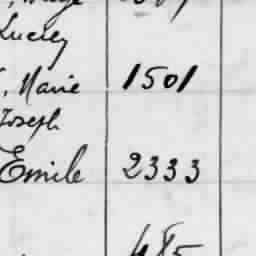 Lucrey
, Marie 1501
Joseph
Emile 2333